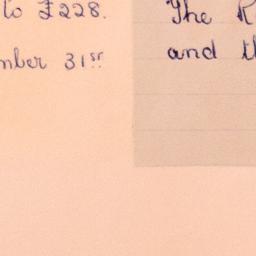 to £228.
mber 31st
The R
and th